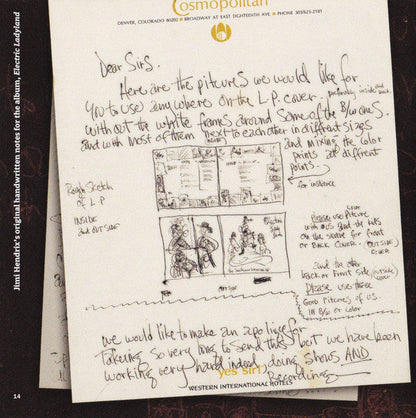 Cosmopolitan
DENVER, COLORADO 80202 • BROADWAY AT EAST EIGHTEENTH AVE. • PHONE 303/623-2181
Dear Sirs.
Here are the pitcures we would like for
you to use anywhere on the L.P. cover. preferably inside and back
with out the white frames around some of the B/W ones.
and with most of them next to each other in diffrent sizes
and mixing the color
prints at diffrent
points.
for instance
Rough Sketch
of L.P
INSIDE
and OUT SIDE
Please use Color Pitcure
with US and the kids
on the statue for front
or Back Cover. (OUTSIDE) COVER
and the other
back or Front Side (outside) cover
Please use three
Good Pitcures of us
in B/W or color
we would like to make an apology for
Taking so very long to send this but we have been
working very hard indeed, doing Shows AND
Recording.
yes sir!
WESTERN INTERNATIONAL HOTELS
Jimi Hendrix's original handwritten notes for the album, Electric Ladyland
14